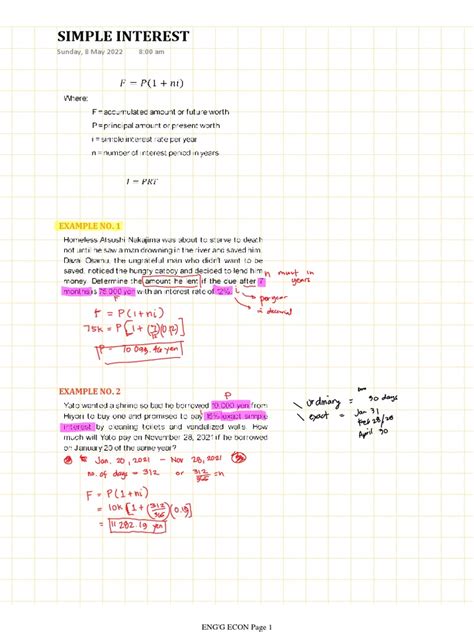 SIMPLE INTEREST
Sunday, 8 May 2022 8:00 am
F = P(1 + ni)
Where:
F = accumulated amount or future worth
P = principal amount or present worth
i = simple interest rate per year
n = number of interest period in years
I = PRT
EXAMPLE NO. 1
Homeless Atsushi Nakajima was about to starve to death
not until he saw a man drowning in the river and saved him.
Dazai Osamu, the ungrateful man who didn't want to be
saved, noticed the hungry catboy and decided to lend him
money. Determine the amount he lent if the due after 7
months is 75,000 yen with an interest rate of 12%.
n must in
years
P
F
i
per year
in decimal
F = P(1+ni)
75K = P[1+(7/12)(0.12)]
P = 70 093.46 yen
EXAMPLE NO. 2
P
Yato wanted a shrine so bad he borrowed 10,000 yen from
Hiyori to buy one and promised to pay 15% exact simple
interest by cleaning toilets and vandalized walls. How
much will Yato pay on November 28, 2021 if he borrowed
on January 20 of the same year?
ordinary = 30 days
exact = Jan 31
Feb 28/29
April 30
Jan. 20, 2021 – Nov 28, 2021
no. of days = 312 or 312/365
F = P(1+ni)
= 10K[1+(312/365)(0.15)]
= 11 282.19 yen
ENG'G ECON Page 1